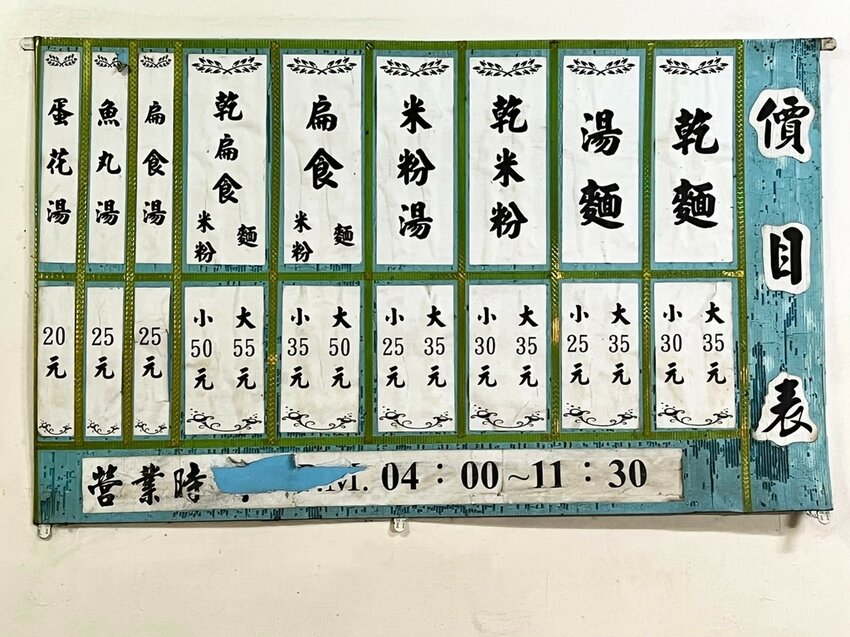 價目表
乾麵
大35元
小30元
湯麵
大35元
小25元
乾米粉
大35元
小30元
米粉湯
大35元
小25元
扁食
麵
米粉
大50元
小35元
乾扁食
麵
米粉
大55元
小50元
扁食湯
25元
魚丸湯
25元
蛋花湯
20元
營業時 .M. 04：00~11：30